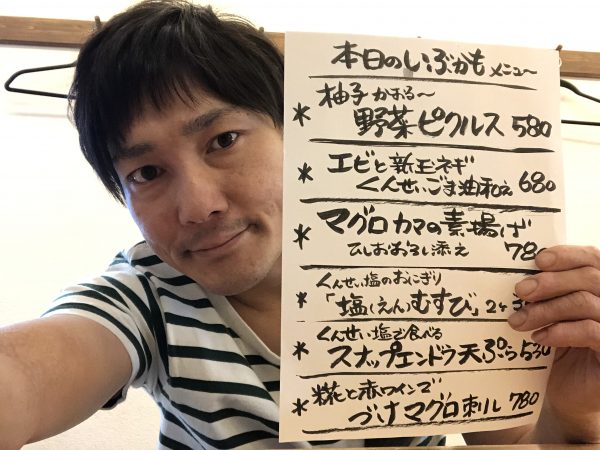 本日のいぶかもメニュー
柚子かおる〜
* 野菜ピクルス 580
* エビと新玉ネギ
くんせいごま油和え 680
* マグロカマの素揚げ
ひしおおろし添え 78
くんせい塩のおにぎり
* 「塩(えん)むすび」2ヶ
くんせい塩で食べる
* スナップエンドウ天ぷら 530
糀と赤ワインで
* づけマグロ刺し 780